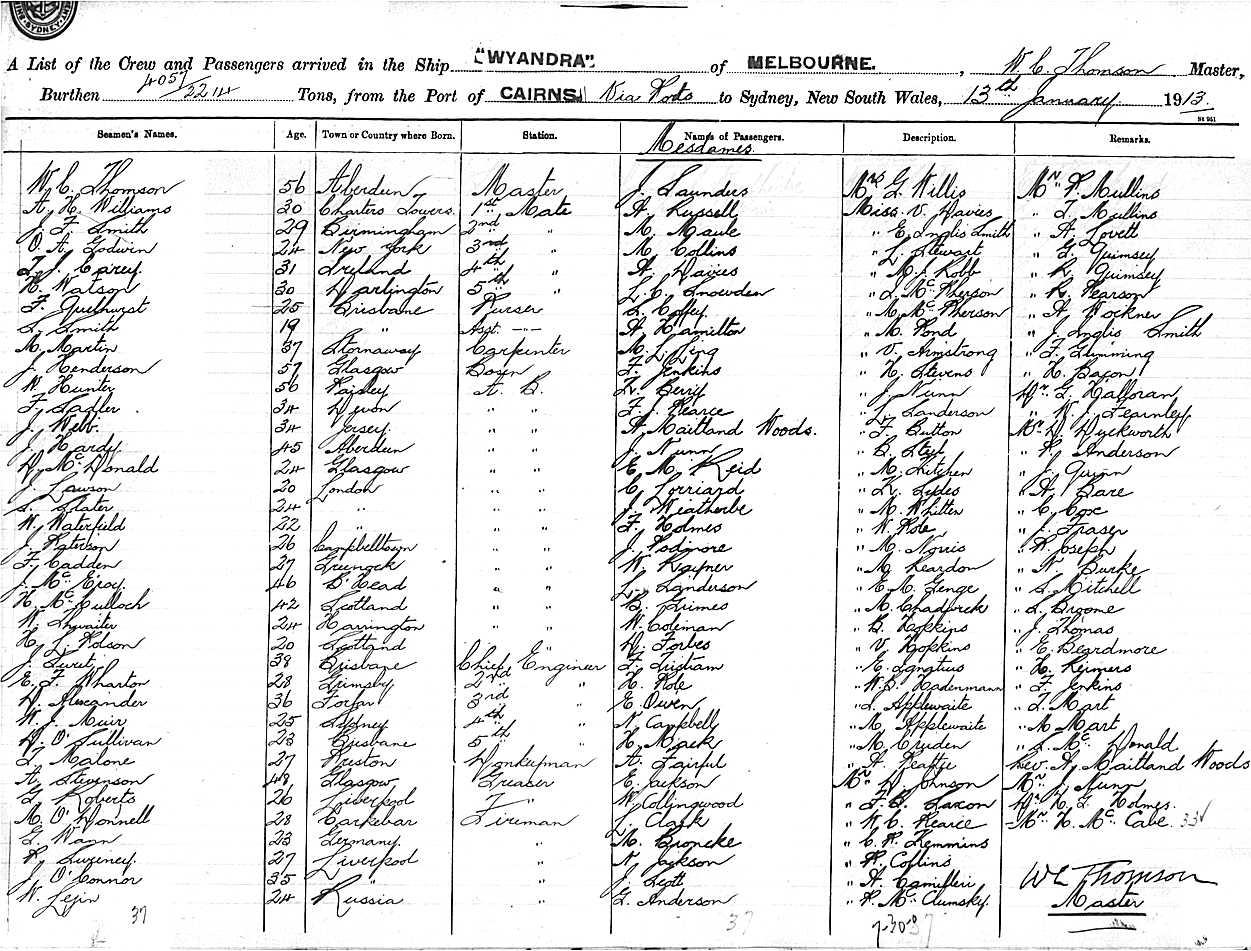 SYDNEY
A List of the Crew and Passengers arrived in the Ship "WYANDRA". of MELBOURNE. , W. C. Thomson Master,
Burthen 4057/2214 Tons, from the Port of CAIRNS. Via Ports to Sydney, New South Wales, 13th January 1913.
Seamen's Names. Age. Town or Country where Born. Station. Names of Passengers. Description. Remarks.
Mesdames.
W. C. Thomson 56 Aberdeen Master J. Saunders Mrs G. Willis Mr P. Mullins
A. H. Williams 30 Charters Towers 1st Mate A. Russell Miss V. Davies " T. Mullins
J. F. Smith 29 Birmingham 2nd " M. Maule " E. Inglis Smith " A. Lovett
O. A. Godwin 24 New York 3rd " M. Collins " L. Stewart " G. Quimsey
T. J. Carey 31 Ireland 4th " A. Davies " M. J. Robb " R. Quimsey
H. Watson 30 Darlington 5th " L. C. Snowden " I. McPherson " R. Pearson
F. 25 Brisbane Purser S. Coffey " M. McPherson " A. Wockner
S. Smith 19 " Asst. -"- A. Hamilton " M. Pond " J. Inglis Smith
M. Martin 37 Stornaway Carpenter M. L. Ling " V. Armstrong " F. Flemming
J. Henderson 57 Glasgow Bosun F. Jenkins " H. Stevens " H. Bacon
W. Hunter 56 Paisley A. B. L. Berry " J. Nunn Dr G. Halloran
F. Sadler 34 Devon " " F. J. Pearce " L. Sanderson " W. J. Fearnley
J. Webb 34 Jersey " " A. Maitland Woods. " F. Button Mr D. Duckworth
J. Hardy 45 Aberdeen " " J. Nunn " B. " P. Anderson
D. McDonald 24 Glasgow " " E. M. Reid " M. Kitchen " J. Quinn
J. Lawson 20 London " " C. Lorriard " L. Sydes " A. Bare
S. Slater 24 " " " J. Weatherbe " M. Whitten " C. Cox
W. Waterfield 22 " " " F. Holmes " W. Pole " J. Fraser
J. Paterson 26 Campbelltown " " J. Podmore " M. Norris " P. Joseph
F. Cadden 27 Greenock " " W. Rayner " M. Reardon " N. Burke
J. McEroy 46 B'Head " " L. Sanderson " E. M. Genge " S. Mitchell
H. McCulloch 42 Scotland " " B. Grimes " M. Chadwick " L. Broome
W. 24 Harrington " " W. Coleman " B. Hopkins " J. Thomas
H. L. Polson 20 Scotland " D. Forbes " V. Hopkins " C. Beardmore
J. Suret 38 Brisbane Chief Engineer F. Tudham " E. Ignatius " H. Reimers
E. F. Wharton 28 Grimsby 2nd " H. Pole " W. B. Hadenmann " F. Jenkins
D. Alexander 36 Forfar 3rd " E. Owen " L. Applewaite " T. Mart
W. J. Muir 25 Sydney 4th " N. Campbell " M. Applewaite " M. Mart
D. O'Sullivan 23 Brisbane 5th " H. Mack " M. Cruden " L. McDonald
T. Malone 27 Preston Donkeyman A. Fairful " A. Rev. A. Maitland Woods
A. Stevenson 48 Glasgow Greaser E. Jackson Mr D. Johnson Mr J. Nunn
G. Roberts 26 Liverpool F " W. Collingwood " F. B. Saxon Dr H. L. Holmes.
M. O'Donnell 28 Fireman L. Clark " W. C. Pearce Mr H. McCabe 33
G. Wann 23 Germany " M. Broncke " C. P. Flemmins
P. Sweeney 27 Liverpool " N. Jackson " P. Collins
J. O'Connor 35 " " J. Scott " A. Camilleri WC Thomson
W. Lejin 24 Russia " G. Anderson " P. McClumsky. Master
37 37 7-30 37